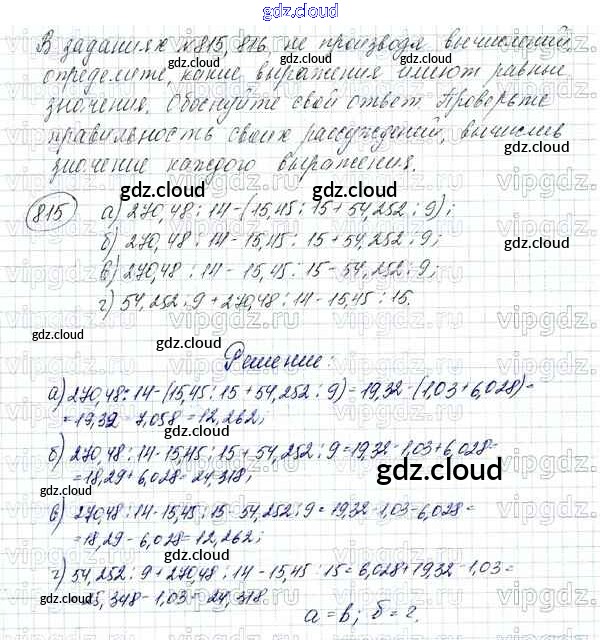 gdz.cloud
В заданиях №815, 816, не производя вычислений,
определите, какие выражения имеют равные
значения. Обоснуйте свой ответ. Проверьте
правильность своих рассуждений, вычислив
значение каждого выражения.
gdz.cloud gdz.cloud
815 а) 270,48 : 14 - (15,45 : 15 + 54,252 : 9);
б) 270,48 : 14 - 15,45 : 15 + 54,252 : 9; gdz.cloud
в) 270,48 : 14 - 15,45 : 15 - 54,252 : 9;
г) 54,252 : 9 + 270,48 : 14 - 15,45 : 15.
gdz.cloud gdz.cloud
Решение:
а) 270,48 : 14 - (15,45 : 15 + 54,252 : 9) = 19,32 - (1,03 + 6,028) =
= 19,32 - 7,058 = 12,262; gdz.cloud
б) 270,48 : 14 - 15,45 : 15 + 54,252 : 9 = 19,32 - 1,03 + 6,028 =
= 18,29 + 6,028 = 24,318; gdz.cloud
gdz.cloud
в) 270,48 : 14 - 15,45 : 15 - 54,252 : 9 = 19,32 - 1,03 - 6,028 =
= 18,29 - 6,028 = 12,262; gdz.cloud
gdz.cloud
г) 54,252 : 9 + 270,48 : 14 - 15,45 : 15 = 6,028 + 19,32 - 1,03 =
25,348 - 1,03 = 24,318.
gdz.cloud а = в; б = г.